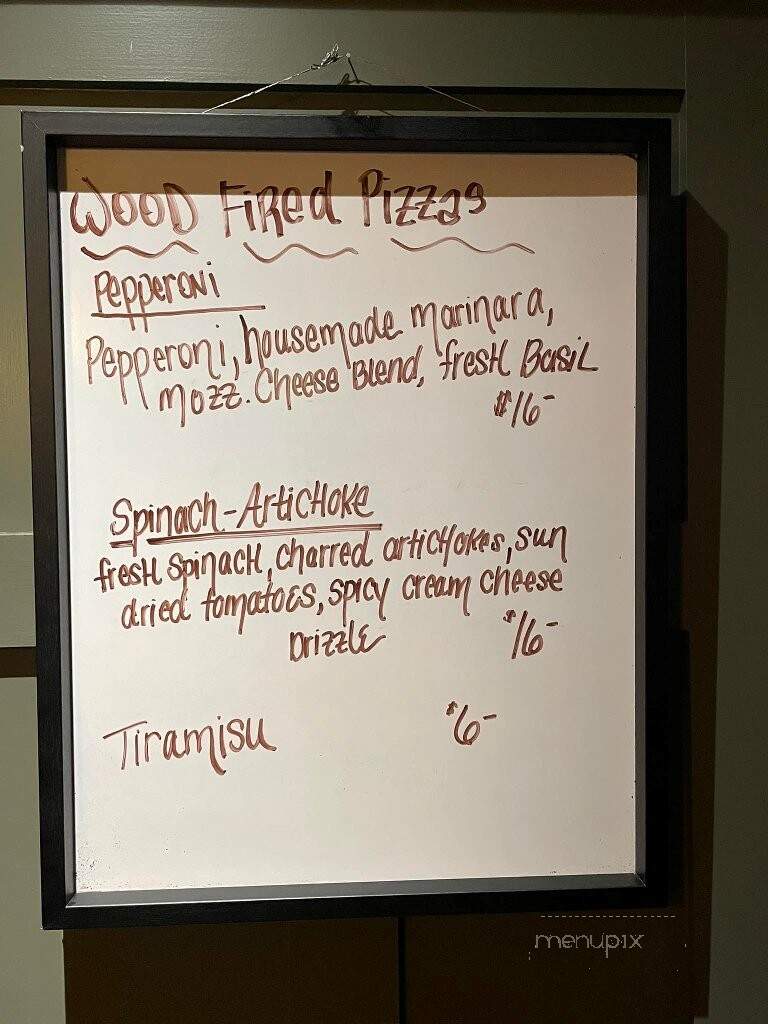 WOOD FiRed Pizzas
Pepperoni
Pepperoni, housemade marinara,
mozz. Cheese Blend, fresh Basil
$16-
Spinach-Artichoke
fresh spinach, charred artichokes, sun
dried tomatoes, spicy cream cheese
Drizzle $16-
Tiramisu $6-
menupix